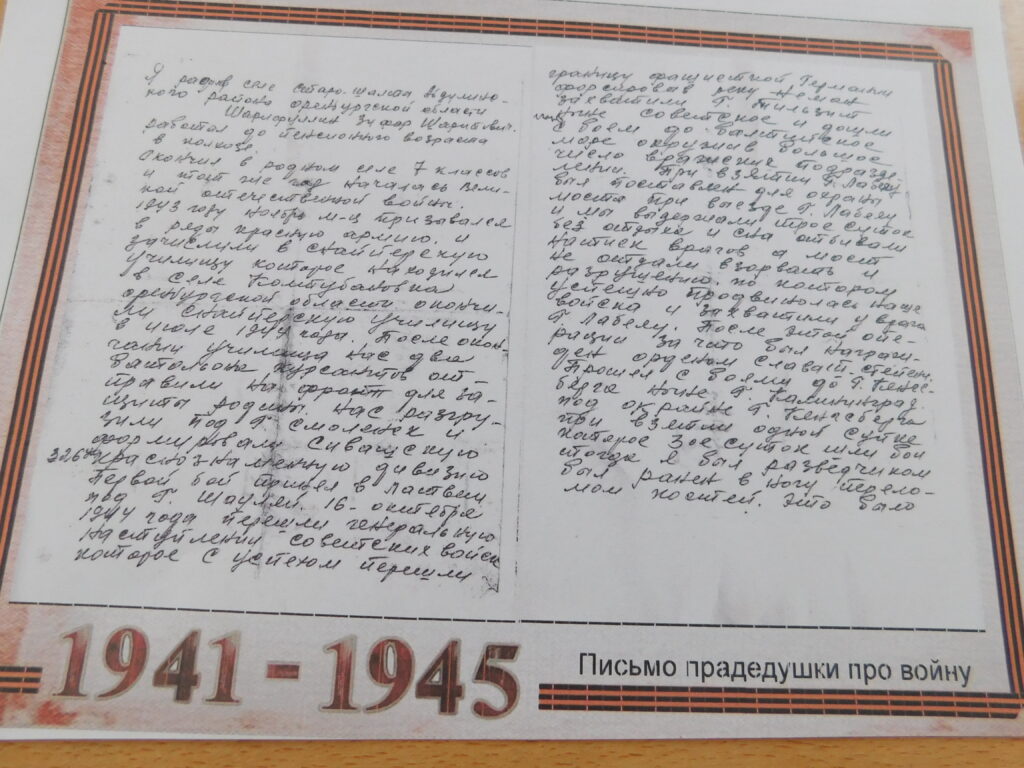 Я родив селе Старо-Шалта Абдулинс-
кого района оренбургской области
Шарифуллин Зуфар Шарипович.
работал до пенсионного возраста
в колхозе.
Окончил в родном селе 7 классов
и тот же год началась Вели-
кой отечественной войны.
1943 году ноябрь м-ц призывался
в ряды красную армию. и
зачислили в снайперскую
училищу которое находился
в селе Колтубановка
оренбургской области окончи-
ли снайперскую училищу
в июле 1944 года. После окон
чании училища нас два
баттольона курсантов от-
правили на фронт для за-
щиты родины. нас разгру-
зили под г. Смоленск и
формировали Сивашскую
326ю краснознаменную дивизию
Первой бой принял в
под г. Шауляй. 16 - октября
1944 года перешли генеральную
наступлении советских войск
которое с успехом перешли
границу фашисткой Германии
форсировав реку Неман
захватили г. Тильзит
ныне советское и дошли
с боем до балтийское
море окружив большое
число вражеских подразде-
лении. При взятии г. Лабеу
был поставлен для охраны
моста при выезде г. Лабеау
и мы выдержали трое суток
без отдыха и сна отбивали
натиск врагов а мост
не отдали взорвать и
разрушению. по котором
успешно продвижолась наше
войска и захватили у врага
г. Лабеау. После этой опе-
рации за что был награж-
ден орденом славы степен.
Прошел с боями до г. Кенес-
берга ныне г. Калининград.
под окрайне г. Кенасберга
при взятии одной
которое 3ое суток шли бои
тогда я был разведчиком
был ранен в ногу перело-
мом костей. это было
1941 - 1945
Письмо прадедушки про войну